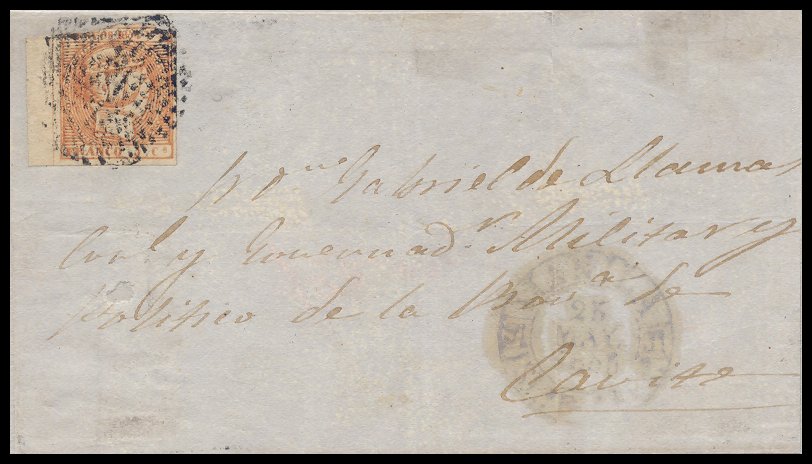 Sr Dn Gabriel de Llamas
Corl y Governadr Militar y
Politico de la Prova de
Cavite
25
MAY